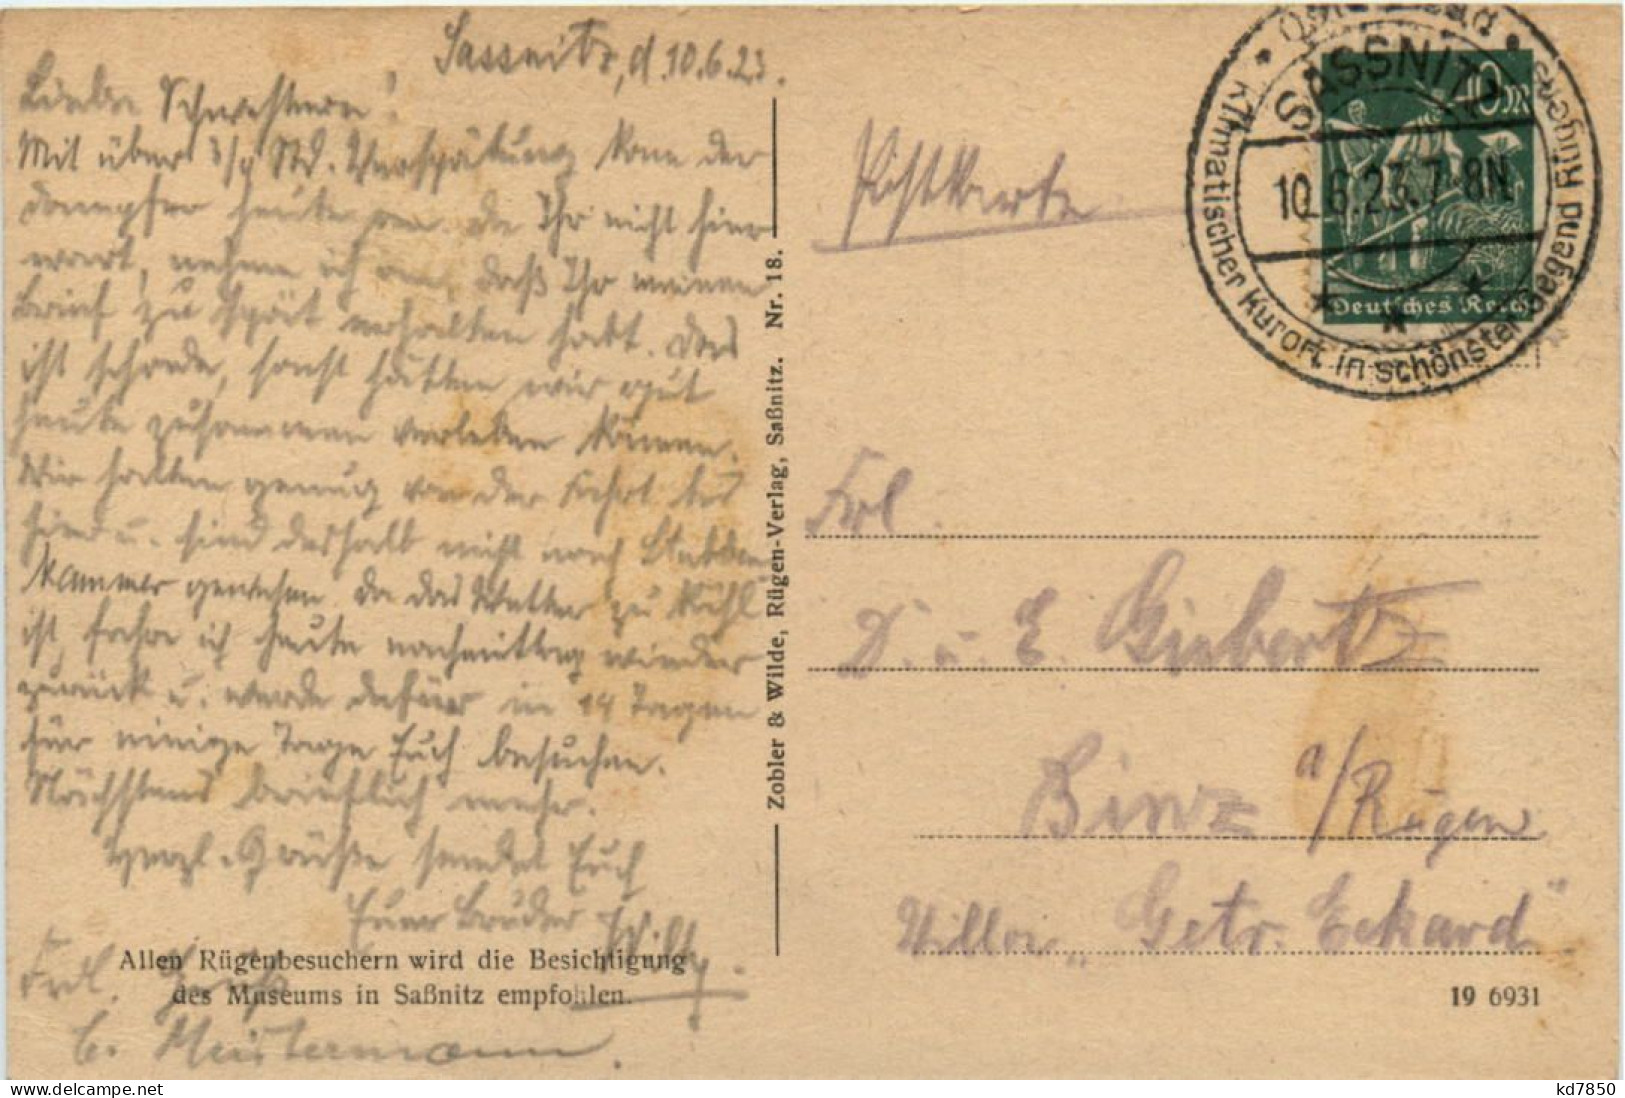 Sassnitz, d. 10.6.23.
Liebe Schwestern!
Mit über 3/4 Std. Verspätung kam der
Dampfer heute an. Da Ihr nicht hier
wart, nehme ich an, daß Ihr meinen
Brief zu spät erhalten habt. Das
ist schade, sonst hätten wir gut
heute zusammen verleben können.
Wir hatten genug von der Fahrt bis
hier u. sind deshalb nicht nach Stubben
kammer gewesen. Da das Wetter zu kühl
ist, fahre ich heute nachmittag wieder
zurück u. werde dafür in 14 Tagen
für einige Tage Euch besuchen.
Nächstens brieflich mehr.
Herzl. Grüße sendet Euch
Euer Bruder
Frdl. Gruß
C. Meistermann.
Allen Rügenbesuchern wird die Besichtigung
des Museums in Saßnitz empfohlen.
Zobler & Wilde, Rügen-Verlag, Saßnitz. Nr. 18.
Postkarte
Ostseebad
SASSNITZ
10.6.23.7-8N
Klimatischer Kurort in schönster Gegend Rügens
10 M
Deutsches Reich
Frl.
D. u. E. Giebertz
Binz a/Rügen
Villa „Getr. Eckard"
19 6931
https://www.delcampe.net
kd7850